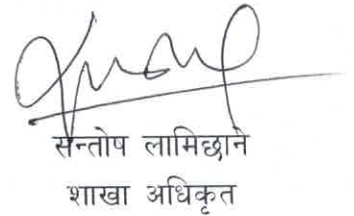 सन्तोष लामिछाने
शाखा अधिकृत